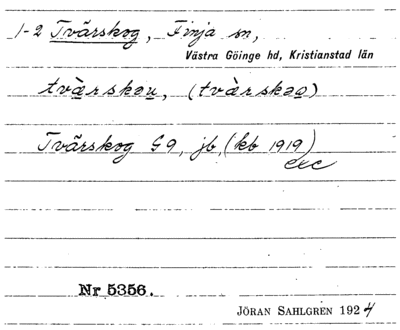 1-2 Tvärskog, Finja sn,
Västra Göinge hd, Kristianstad län
tvæ̀rskəu, (tvæ̀rskəo)
Tvärskog G9, jb, (kb 1919)
Nr 5356.
JÖRAN SAHLGREN 1924